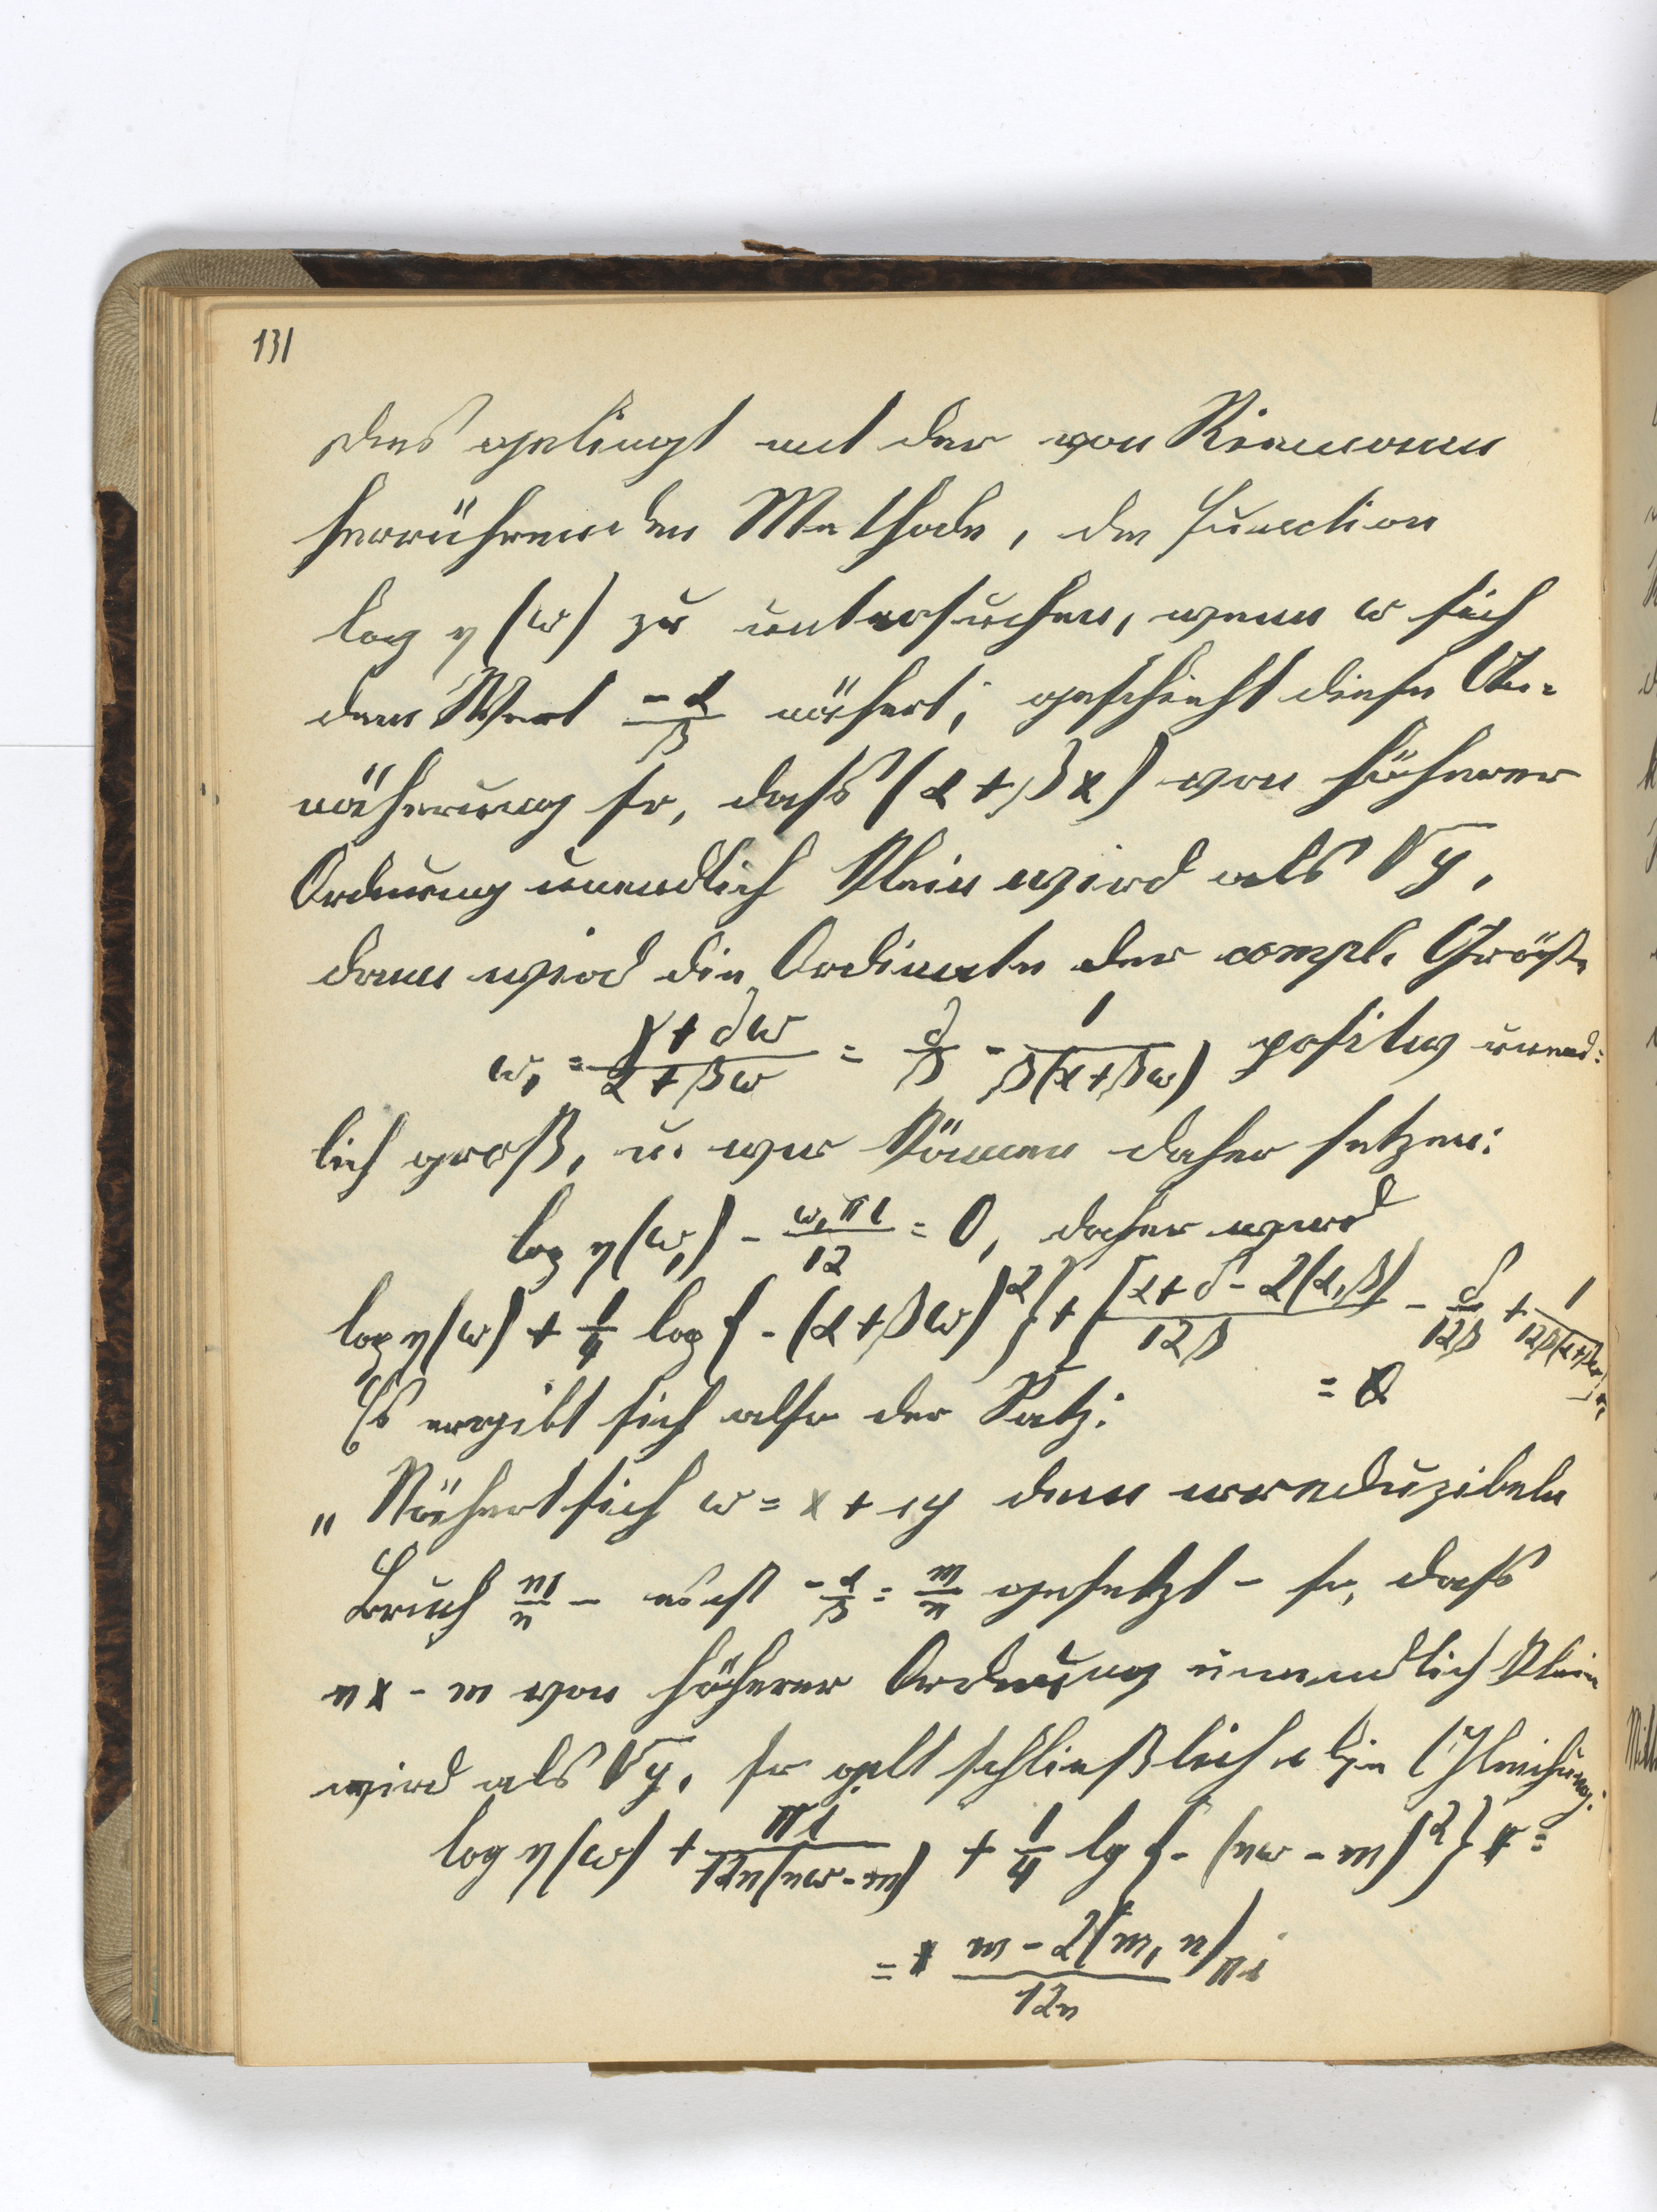 131
Dies gelingt mit der von Riemann
herrührenden Methode, die Function
log η(ω) zu untersuchen, wenn ω sich
dem Wert -α/β nähert; geschieht diese An-
näherung so, dass (α+βx) von höherer
Ordnung unendlich klein wird als √y,
dann wird die Ordinate der compl. Größe
ω₁ = (γ+δω)/(α+βω) = δ/β - 1/(β(α+βω)) positiv unend-
lich groß, u. wir können daher setzen:
log η(ω₁) - ω₁πi/12 = 0, daher wird
log η(ω) + 1/4 log{-(α+βω)²} + [(α+δ-2(α,β))/12β - δ/12β + 1/(12β(α+βω))]πi
= 0
Es ergibt sich also der Satz:
„Nähert sich ω = x + iy dem irreduzibeln
Bruch m/n - es ist -α/β = m/n gesetzt - so, dass
nx - m von höherer Ordnung unendlich klein
wird als √y, so gilt schließlich die Gleichung:
log η(ω) + πi/(12n(nω-m)) + 1/4 lg{-(nω-m)²} =
= (m-2(m,n))/12n πi